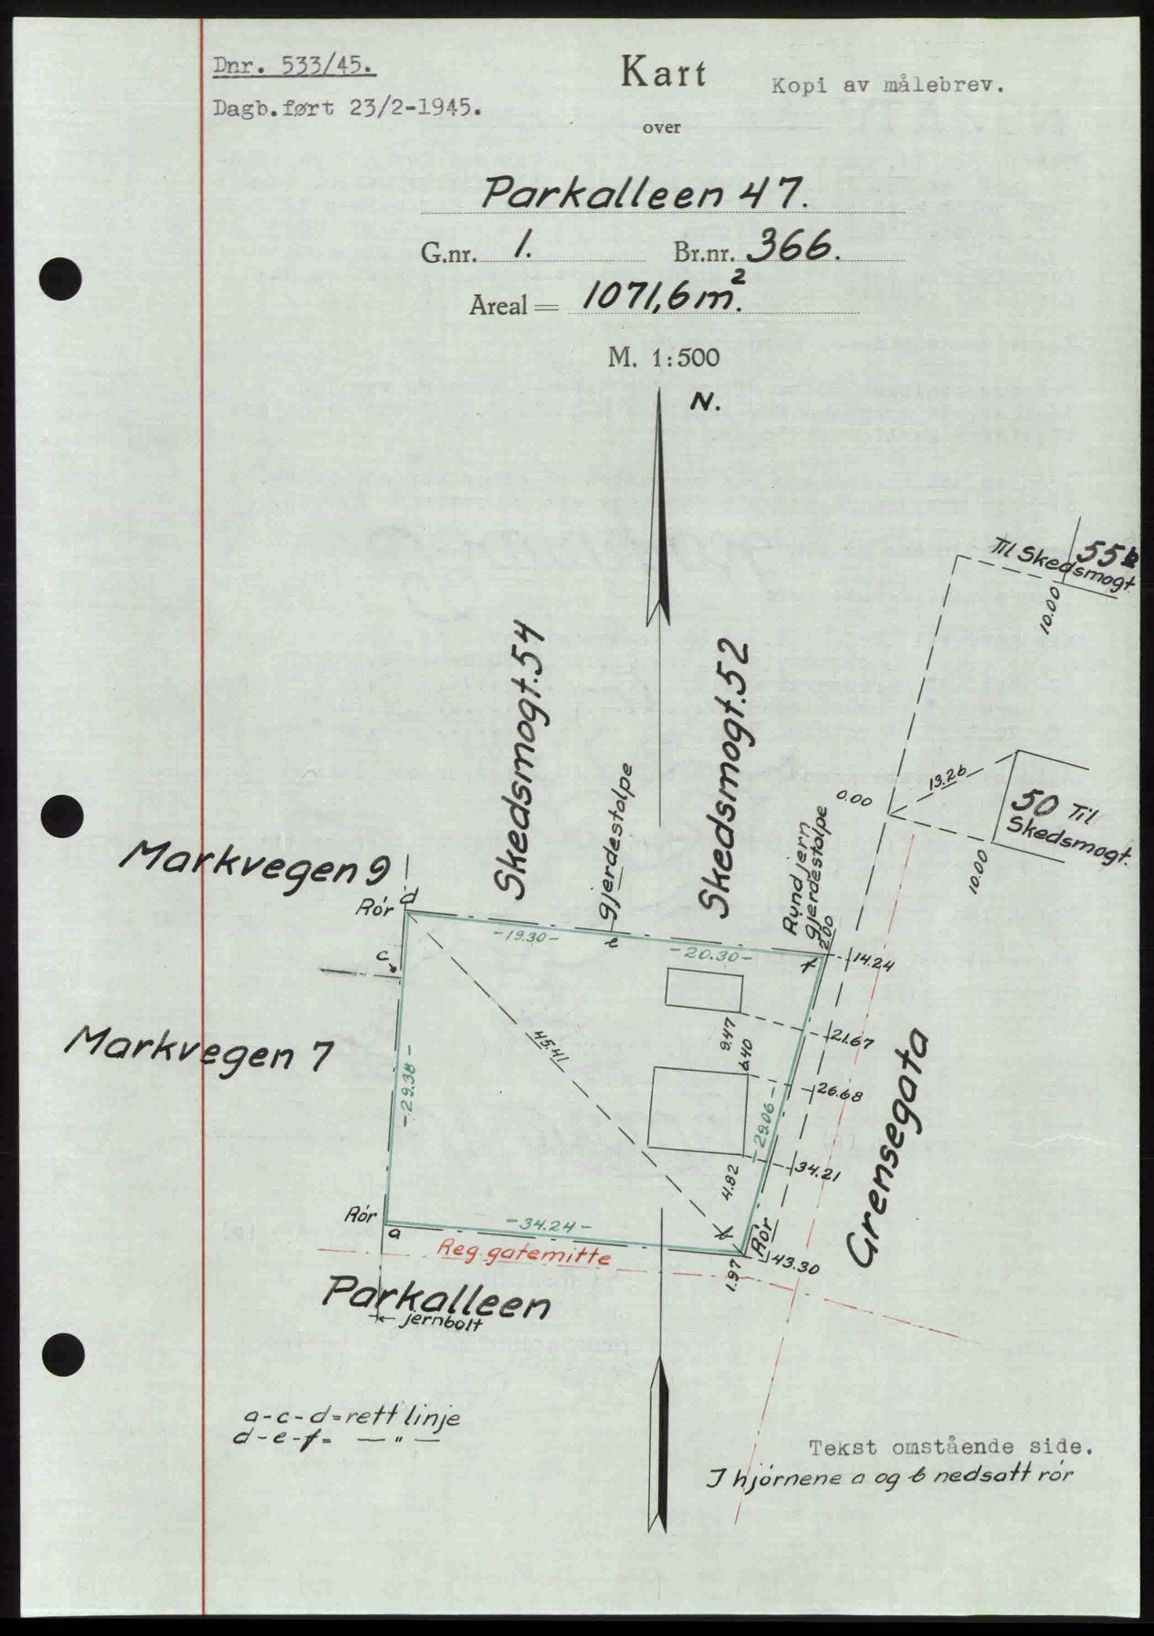 Dnr. 533/45.
Kart
Kopi av målebrev.
Dagb.ført 23/2-1945.
over
Parkalleen 47.
G.nr. 1. Br.nr. 366.
Areal = 1071,6 m².
M. 1:500
N.
Til Skedsmogt.
10.00
Skedsmogt. 54
Skedsmogt. 52
gjerdestolpe
Rundjern
gjerdestolpe
0.00
13.26
50 Til
Skedsmogt.
10.00
Markvegen 9
Rór
d
c
-19.30-
e
-20.30-
2.00
f
14.24
Markvegen 7
45.41
9.47
21.67
6.40
26.68
-29.38-
-29.06-
34.21
4.82
Grensegata
Rór
a
-34.24-
Rór
43.30
1.97
Reg. gatemitte
Parkalleen
jernbolt
a-c-d=rett linje
d-e-f= — " —
Tekst omstående side.
I hjørnene a og b nedsatt rór